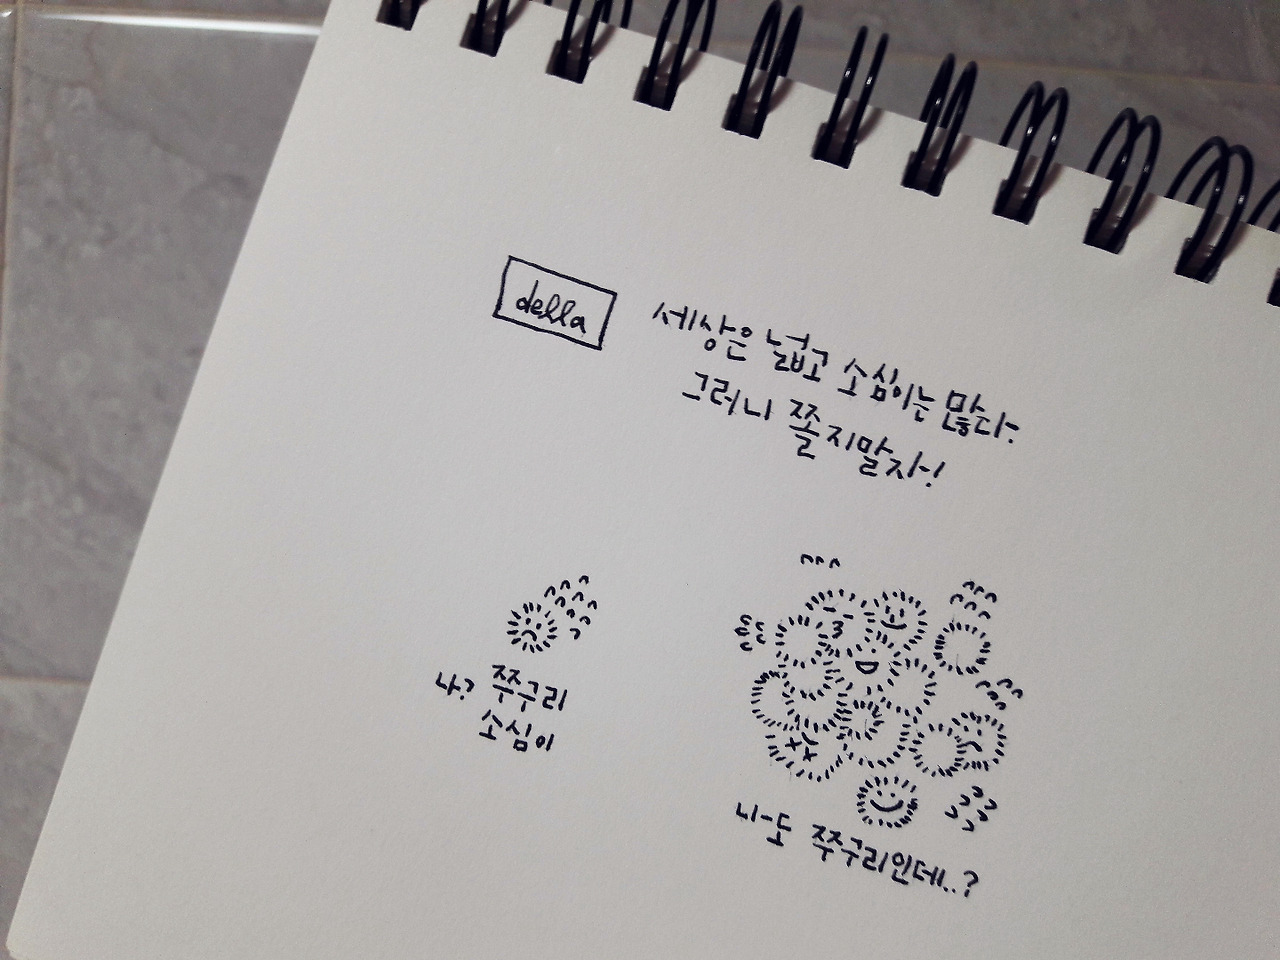 della
세상은 넓고 소심이는 많다.
그러니 쫄지말자!
나? 쭈구리
소심이
나도 쭈구리인데..?